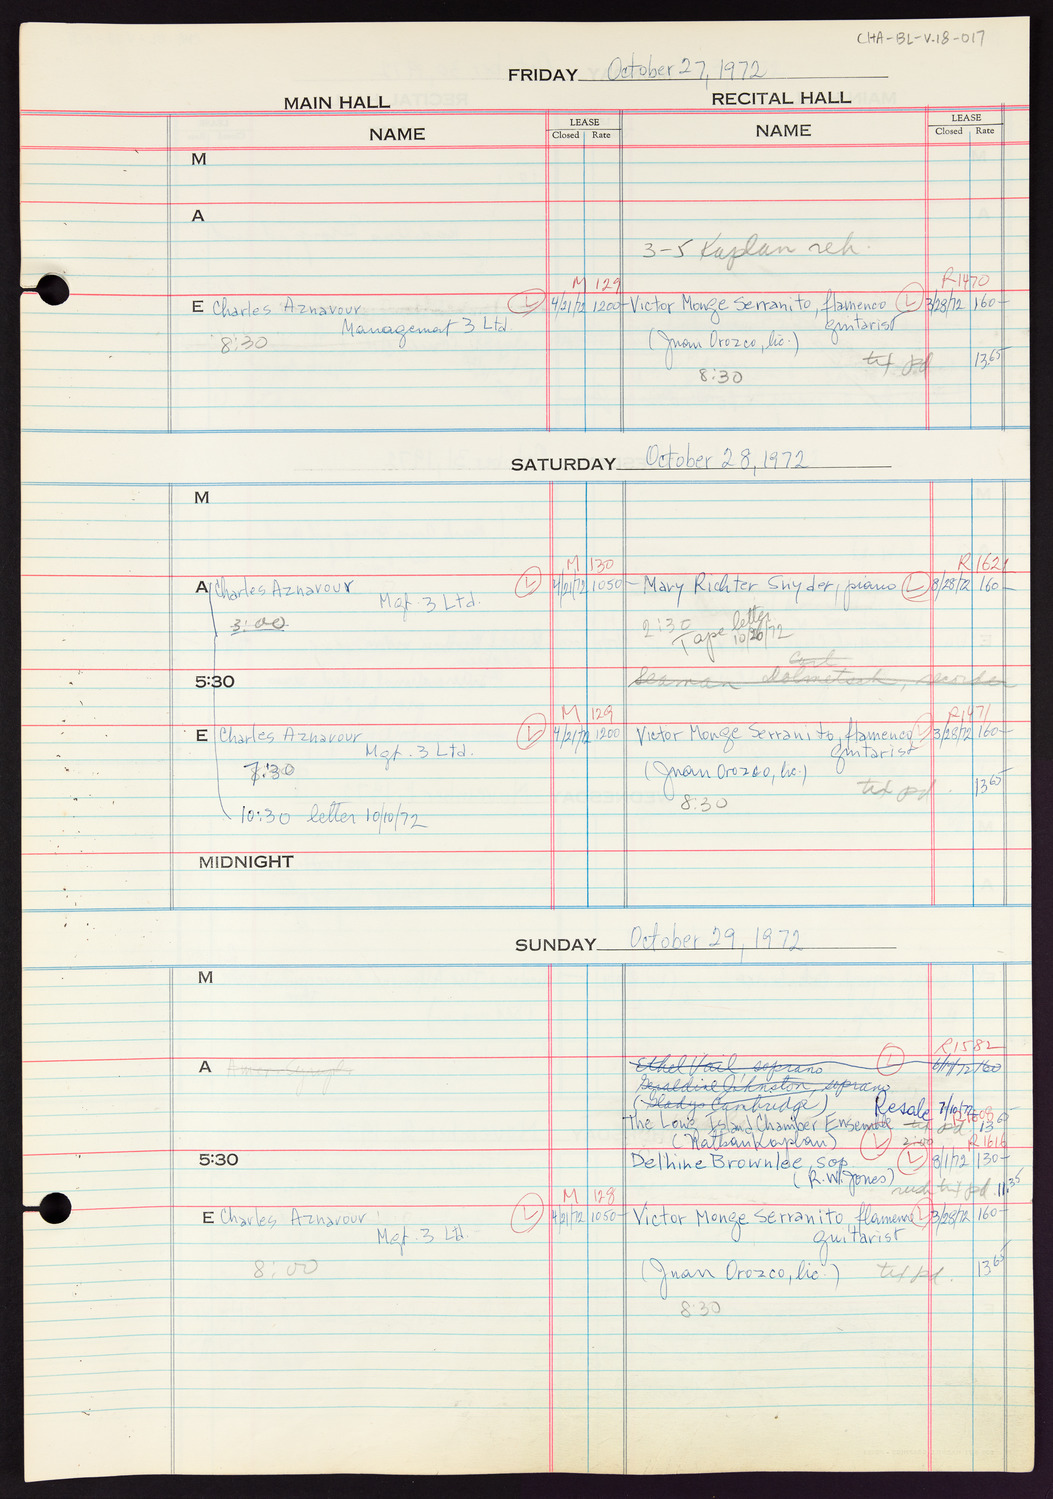 CHA-BL-V.18-017
FRIDAY October 27, 1972
MAIN HALL RECITAL HALL
NAME LEASE Closed Rate NAME LEASE Closed Rate
M
A
3-5 Kaplan reh.
M 129 R1470
E Charles Aznavour L 4/21/72 1200- Victor Monge Serranito, flamenco L 3/28/72 160-
Management 3 Ltd. guitarist
8:30 (Juan Orozco, lic.)
tix pd 13.65
8:30
SATURDAY October 28, 1972
M
M 130 R 1621
A Charles Aznavour L 4/21/72 1050- Mary Richter Snyder, piano L 8/28/72 160-
Mgt. 3 Ltd.
3:00 2:30 letter
Tape 10/20/72
Carl
5:30 Seaman Dolmetsch, recorder
M 129 R1471
E Charles Aznavour L 4/21/72 1200 Victor Monge Serranito, flamenco L 3/28/72 160-
Mgt. 3 Ltd. guitarist
7:30 (Juan Orozco, lic.)
tix pd. 13.65
8:30
10:30 letter 10/10/72
MIDNIGHT
SUNDAY October 29, 1972
M
R1582
A Ethel Vail soprano L 160
Geraldine Johnston, soprano
(Gladys Cambridge) Resale 7/10/72 R1608
The Long Island Chamber Ensemble tix pd. 13.65
(Nathan Kaplan) L 2:00 R1616
5:30 Delhine Brownlee, sop L 8/1/72 130-
(R.W. Jones)
tix pd. 11.35
M 128
E Charles Aznavour L 4/21/72 1050- Victor Monge Serranito, flamenco L 3/28/72 160-
Mgt. 3 Ltd. guitarist
8:00 (Juan Orozco, lic.) tix pd. 13.65
8:30